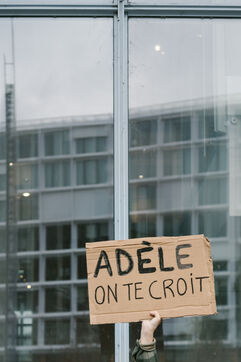 ADÈLE
ON TE CROIT